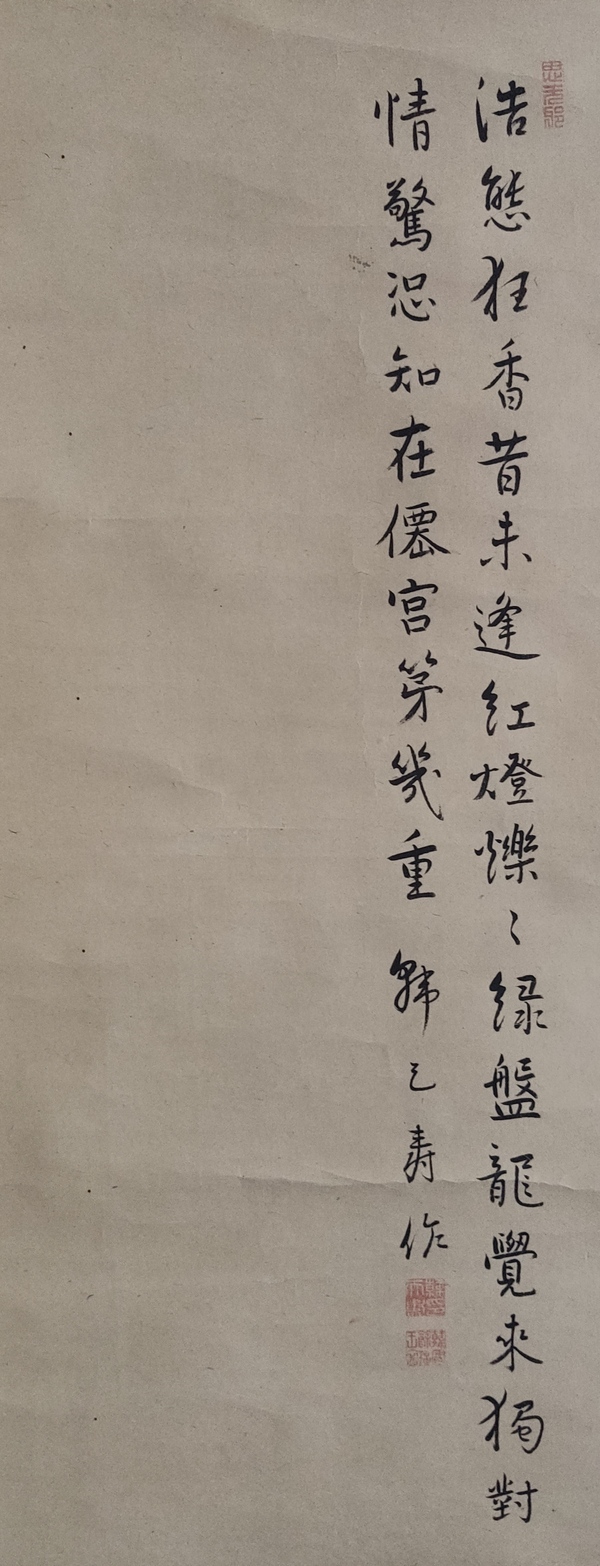 浩態狂香昔未逢紅燈爍〻綠盤龍覺來獨對
情驚恐知在僊宮第幾重 韓之壽作